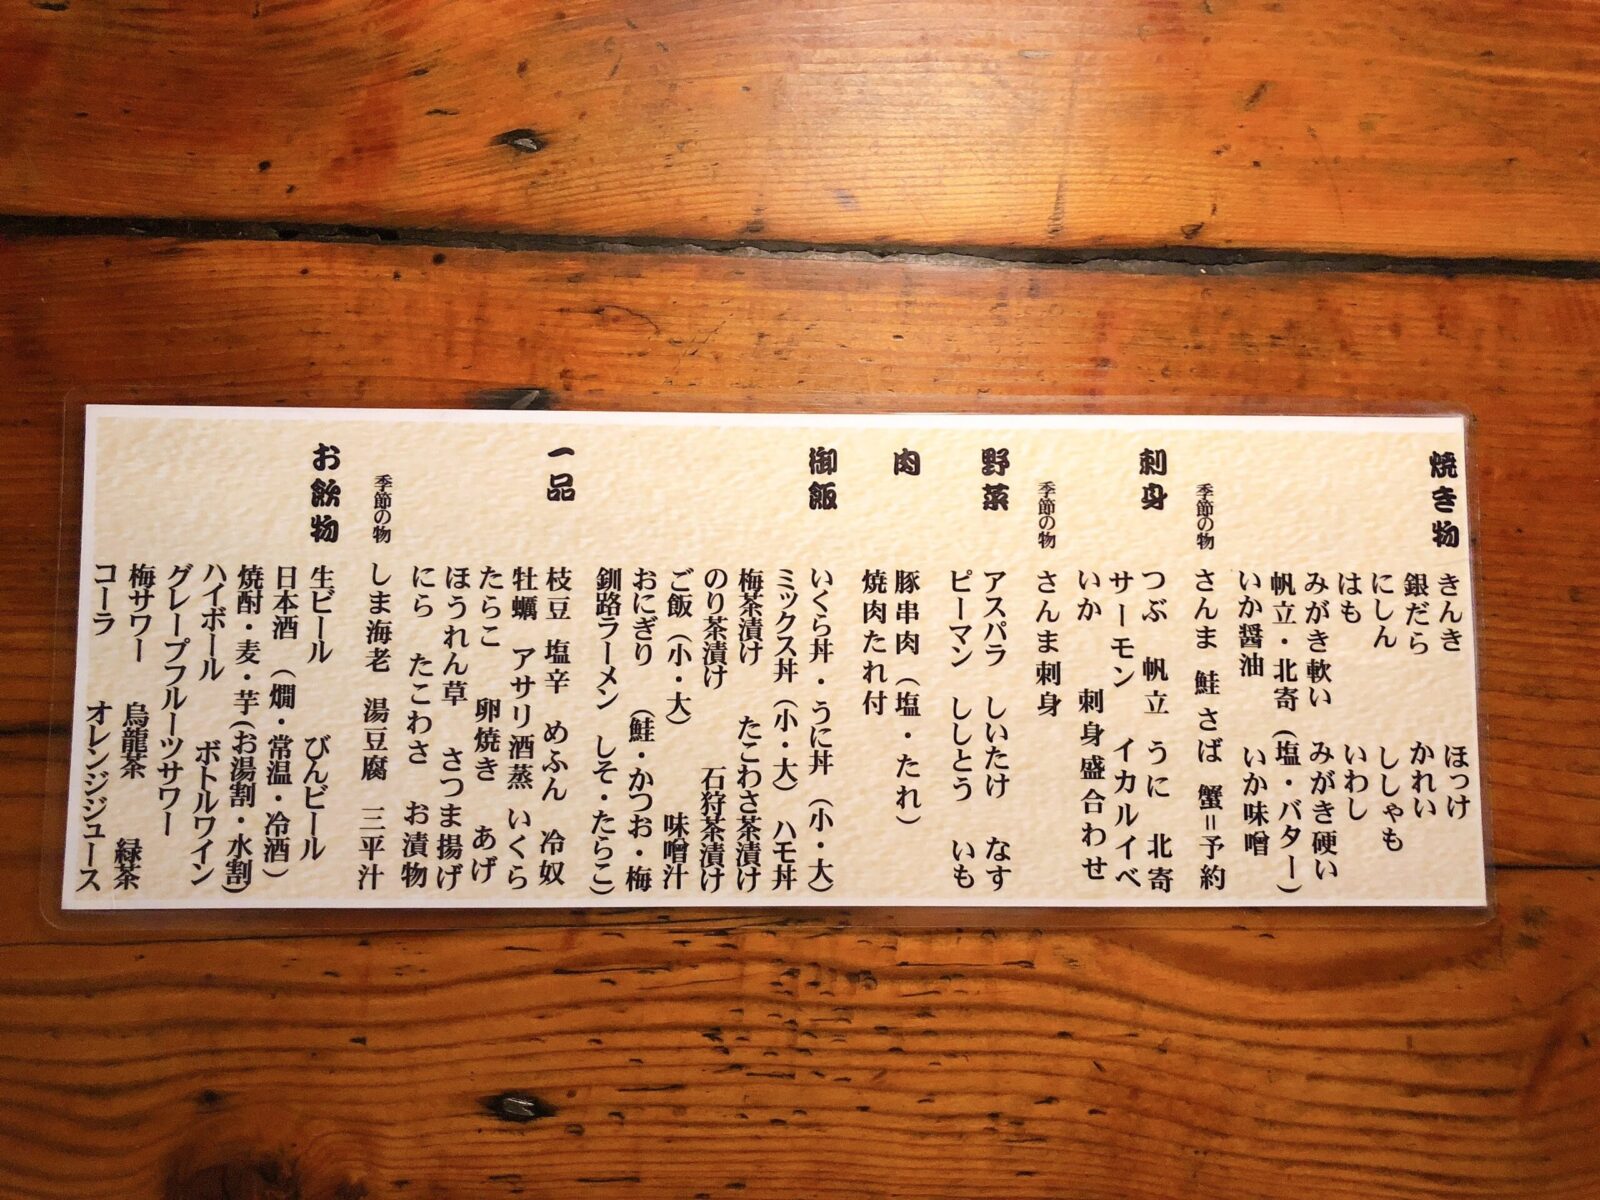 焼き物
きんき ほっけ
銀だら かれい
にしん ししゃも
はも いわし
みがき軟い みがき硬い
帆立・北寄(塩・バター)
いか醤油 いか味噌
季節の物
さんま 鮭 さば 蟹=予約
刺身
つぶ 帆立 うに 北寄
サーモン イカルイベ
いか 刺身盛合わせ
季節の物
さんま刺身
野菜
アスパラ しいたけ なす
ピーマン ししとう いも
肉
豚串肉(塩・たれ)
焼肉たれ付
御飯
いくら丼・うに丼(小・大)
ミックス丼(小・大) ハモ丼
梅茶漬け たこわさ茶漬け
のり茶漬け 石狩茶漬け
ご飯(小・大) 味噌汁
おにぎり(鮭・かつお・梅
釧路ラーメン しそ・たらこ)
一品
枝豆 塩辛 めふん 冷奴
牡蠣 アサリ酒蒸 いくら
たらこ 卵焼き あげ
ほうれん草 さつま揚げ
にら たこわさ お漬物
季節の物
しま海老 湯豆腐 三平汁
お飲物
生ビール びんビール
日本酒 (燗・常温・冷酒)
焼酎・麦・芋(お湯割・水割)
ハイボール ボトルワイン
グレープフルーツサワー
梅サワー 烏龍茶 緑茶
コーラ オレンジジュース